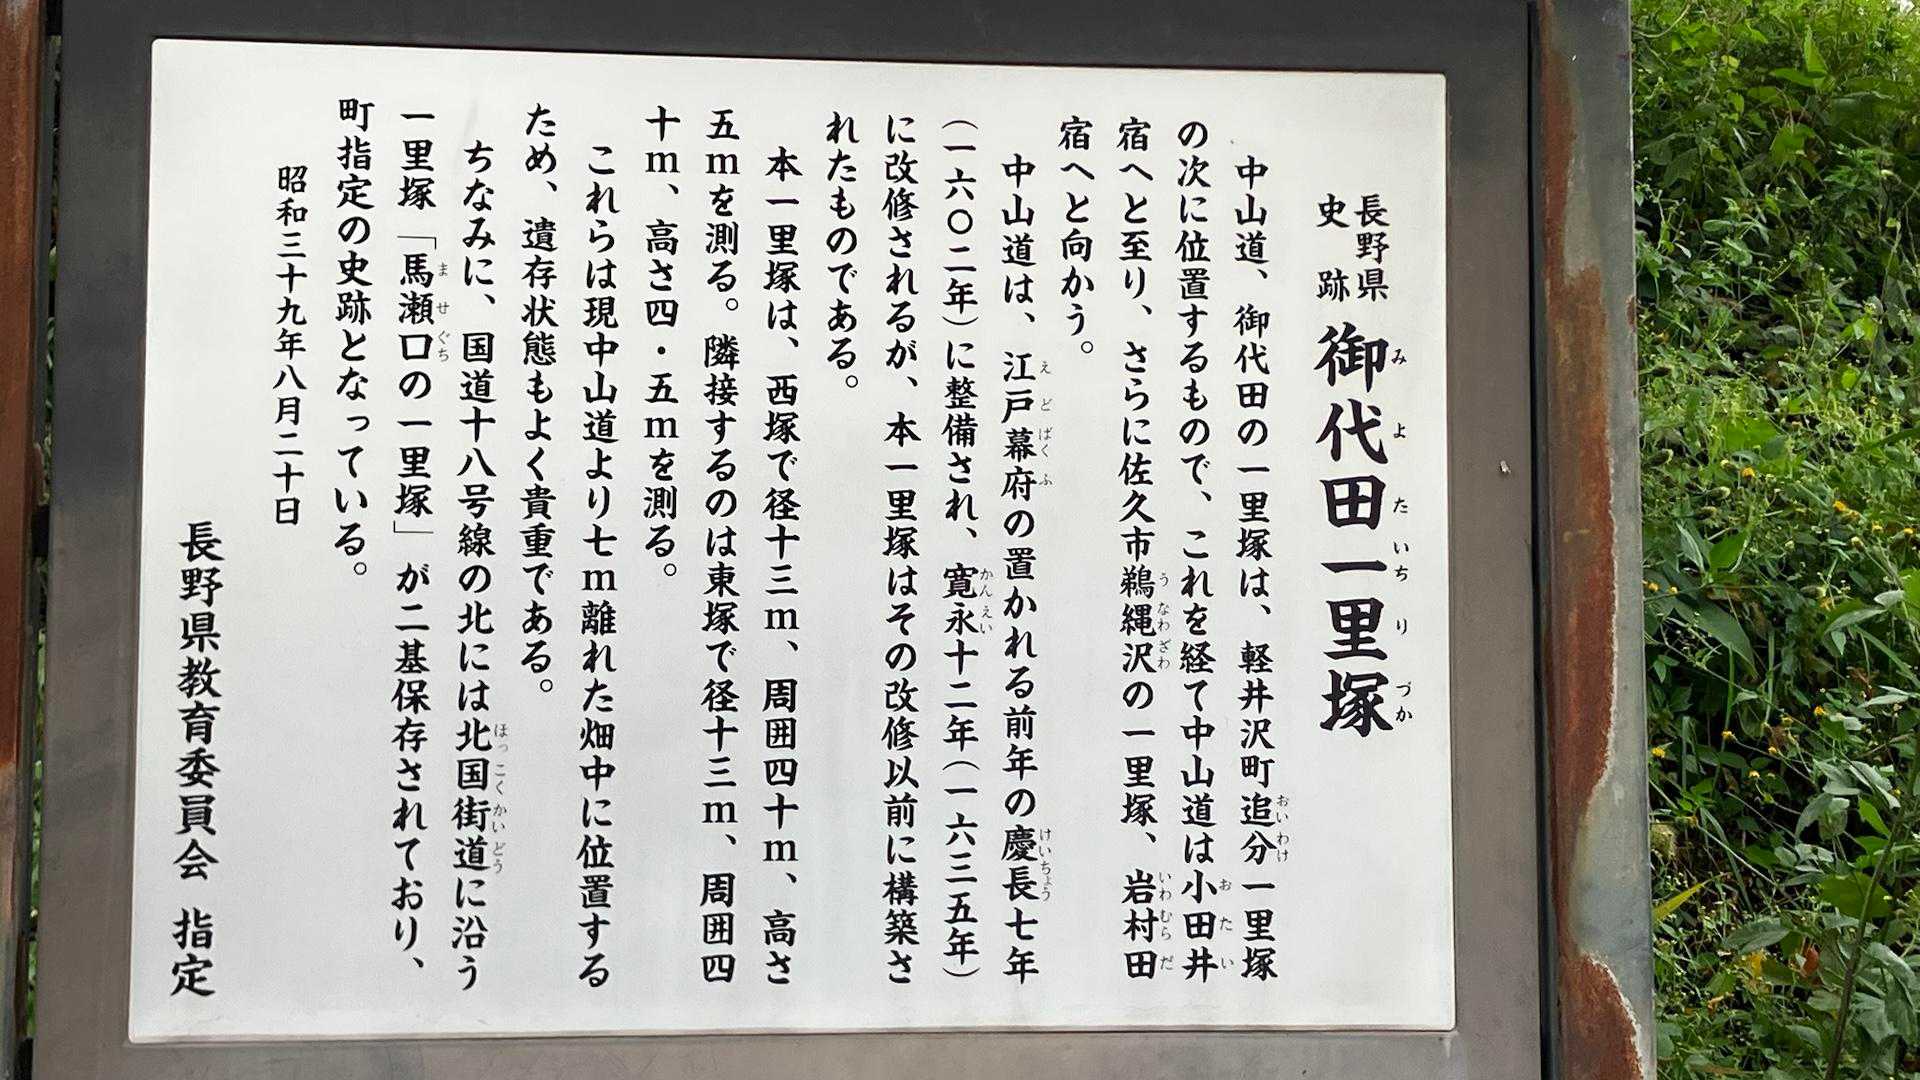 長野県
史跡
御代田一里塚
みよたいちりづか
中山道、御代田の一里塚は、軽井沢町追分一里塚
おいわけ
の次に位置するもので、これを経て中山道は小田井
おたい
宿へと至り、さらに佐久市鵜縄沢の一里塚、岩村田
うなわざわ
いわむらだ
宿へと向かう。
中山道は、江戸幕府の置かれる前年の慶長七年
えどばくふ
けいちょう
(一六〇二年)に整備され、寛永十二年(一六三五年)
かんえい
に改修されるが、本一里塚はその改修以前に構築さ
れたものである。
本一里塚は、西塚で径十三m、周囲四十m、高さ
五mを測る。隣接するのは東塚で径十三m、周囲四
十m、高さ四・五mを測る。
これらは現中山道より七m離れた畑中に位置する
ため、遺存状態もよく貴重である。
ちなみに、国道十八号線の北には北国街道に沿う
ほっこくかいどう
一里塚「馬瀬口の一里塚」が二基保存されており、
ませぐち
町指定の史跡となっている。
昭和三十九年八月二十日
長野県教育委員会 指定